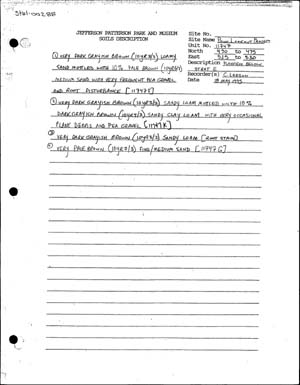 JEFFERSON PATTERSON PARK AND MUSEUM
SOILS DESCRIPTION
Site No.
Site Name
Unit No. 11747
North 470 to 475
East 525 to 530
Description
STRAT E
Recorder(s) C. LEESON
Date MAY 1995
① VERY DARK GRAYISH BROWN (10YR3/2) LOAMY
SAND MOTTLED WITH 10% PALE BROWN (10YR6/3)
MEDIUM SAND WITH VERY FREQUENT PEA GRAVEL
AND ROOT DISTURBANCE [11747E]
② VERY DARK GRAYISH BROWN (10YR3/2) SANDY LOAM MOTTLED WITH 10%
DARK GRAYISH BROWN (10YR4/2) SANDY CLAY LOAM WITH VERY OCCASIONAL
PLANT DEBRIS AND PEA GRAVEL [11747K]
VERY DARK GRAYISH BROWN (10YR3/2) SANDY LOAM [ROOT STAIN]
VERY PALE BROWN (10YR7/3) FINE/MEDIUM SAND [11747G]